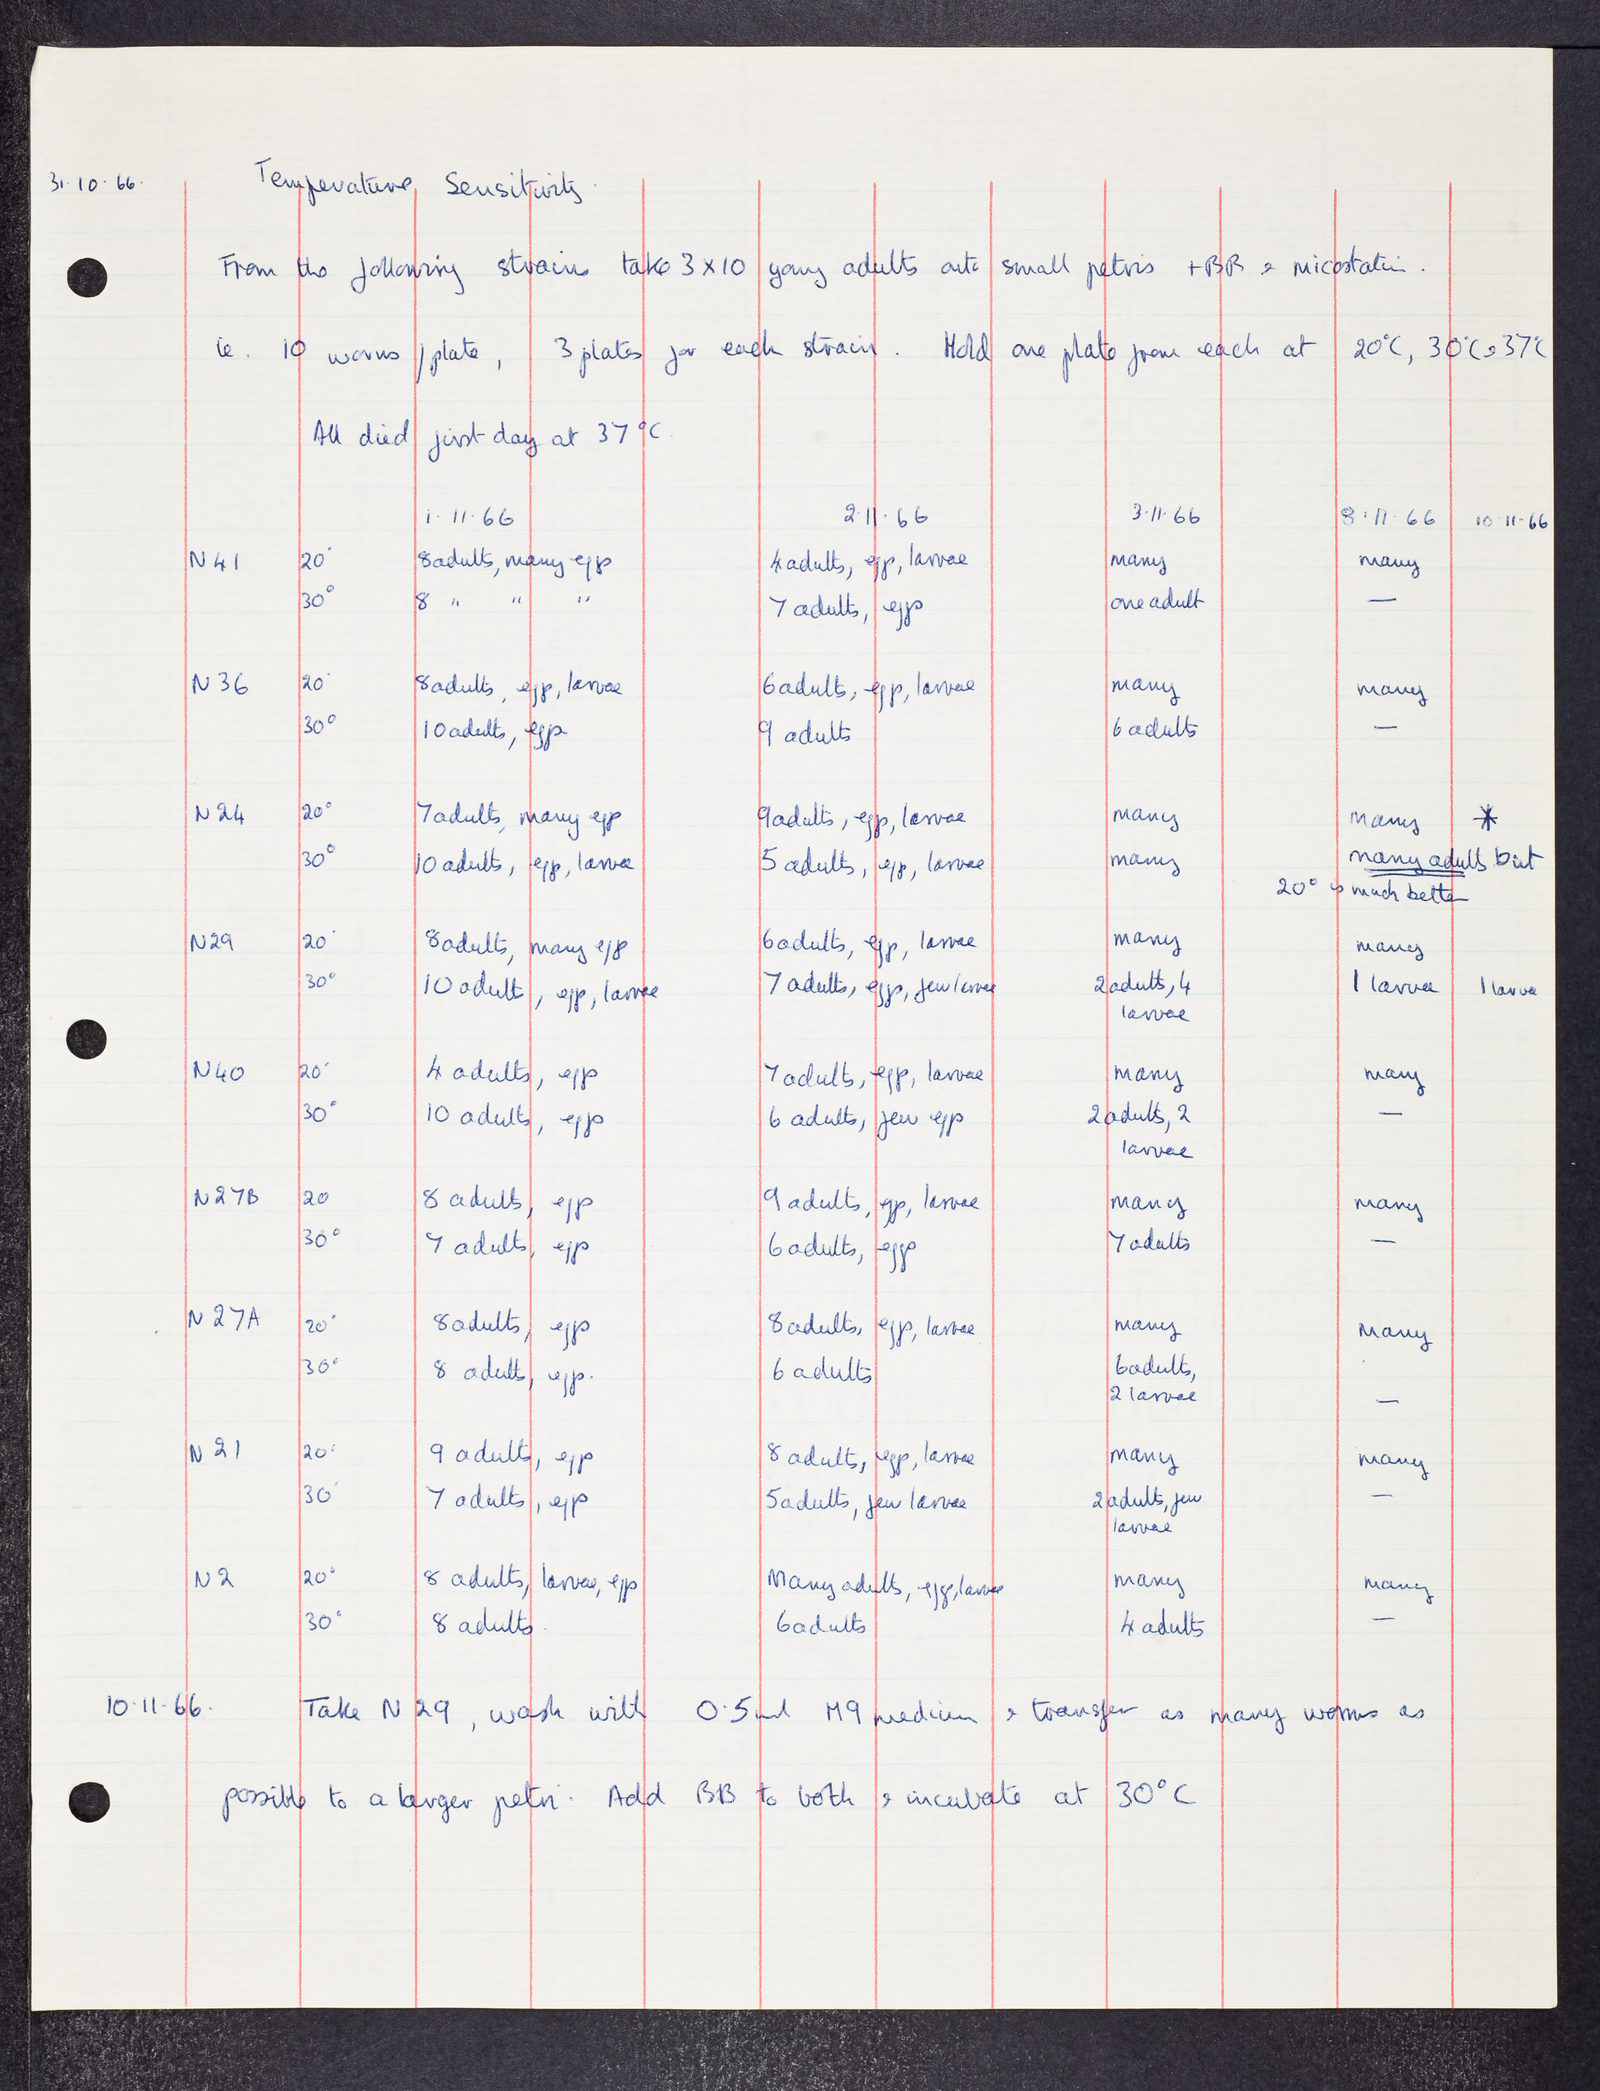 31·10·66. Temperature Sensitivity.
From the following strains take 3 x 10 young adults onto small petris + BB & micostatin.
ie. 10 worms / plate, 3 plates for each strain. Hold one plate from each at 20°C, 30°C & 37°C
All died first day at 37°C.
1·11·66 2·11·66 3·11·66 8·11·66 10·11·66
N41 20° 8 adults, many eggs 4 adults, eggs, larvae many many
30° 8 " " " 7 adults, eggs one adult —
N36 20° 8 adults, eggs, larvae 6 adults, eggs, larvae many many
30° 10 adults, eggs 9 adults 6 adults —
N24 20° 7 adults, many eggs 9 adults, eggs, larvae many many *
30° 10 adults, eggs, larvae 5 adults, eggs, larvae many many adults but
20° is much better
N29 20° 8 adults, many eggs 6 adults, eggs, larvae many many
30° 10 adult, eggs, larvae 7 adults, eggs, few larvae 2 adults, 4 1 larvae 1 larva
larvae
N40 20° 4 adults, eggs 7 adults, eggs, larvae many many
30° 10 adults, eggs 6 adults, few eggs 2 adults, 2 —
larvae
N27B 20 8 adults, eggs 9 adults, eggs, larvae many many
30° 7 adults, eggs 6 adults, eggs 7 adults —
N27A 20° 8 adults, eggs 8 adults, eggs, larvae many many
30° 8 adults, eggs. 6 adults 6 adults,
2 larvae —
N21 20° 9 adults, eggs 8 adults, eggs, larvae many many
30° 7 adults, eggs 5 adults, few larvae 2 adults, few —
larvae
N2 20° 8 adults, larvae, eggs Many adults, eggs, larvae many many
30° 8 adults. 6 adults 4 adults —
10·11·66. Take N29, wash with 0·5ml M9 medium & transfer as many worms as
possible to a larger petri. Add BB to both & incubate at 30°C